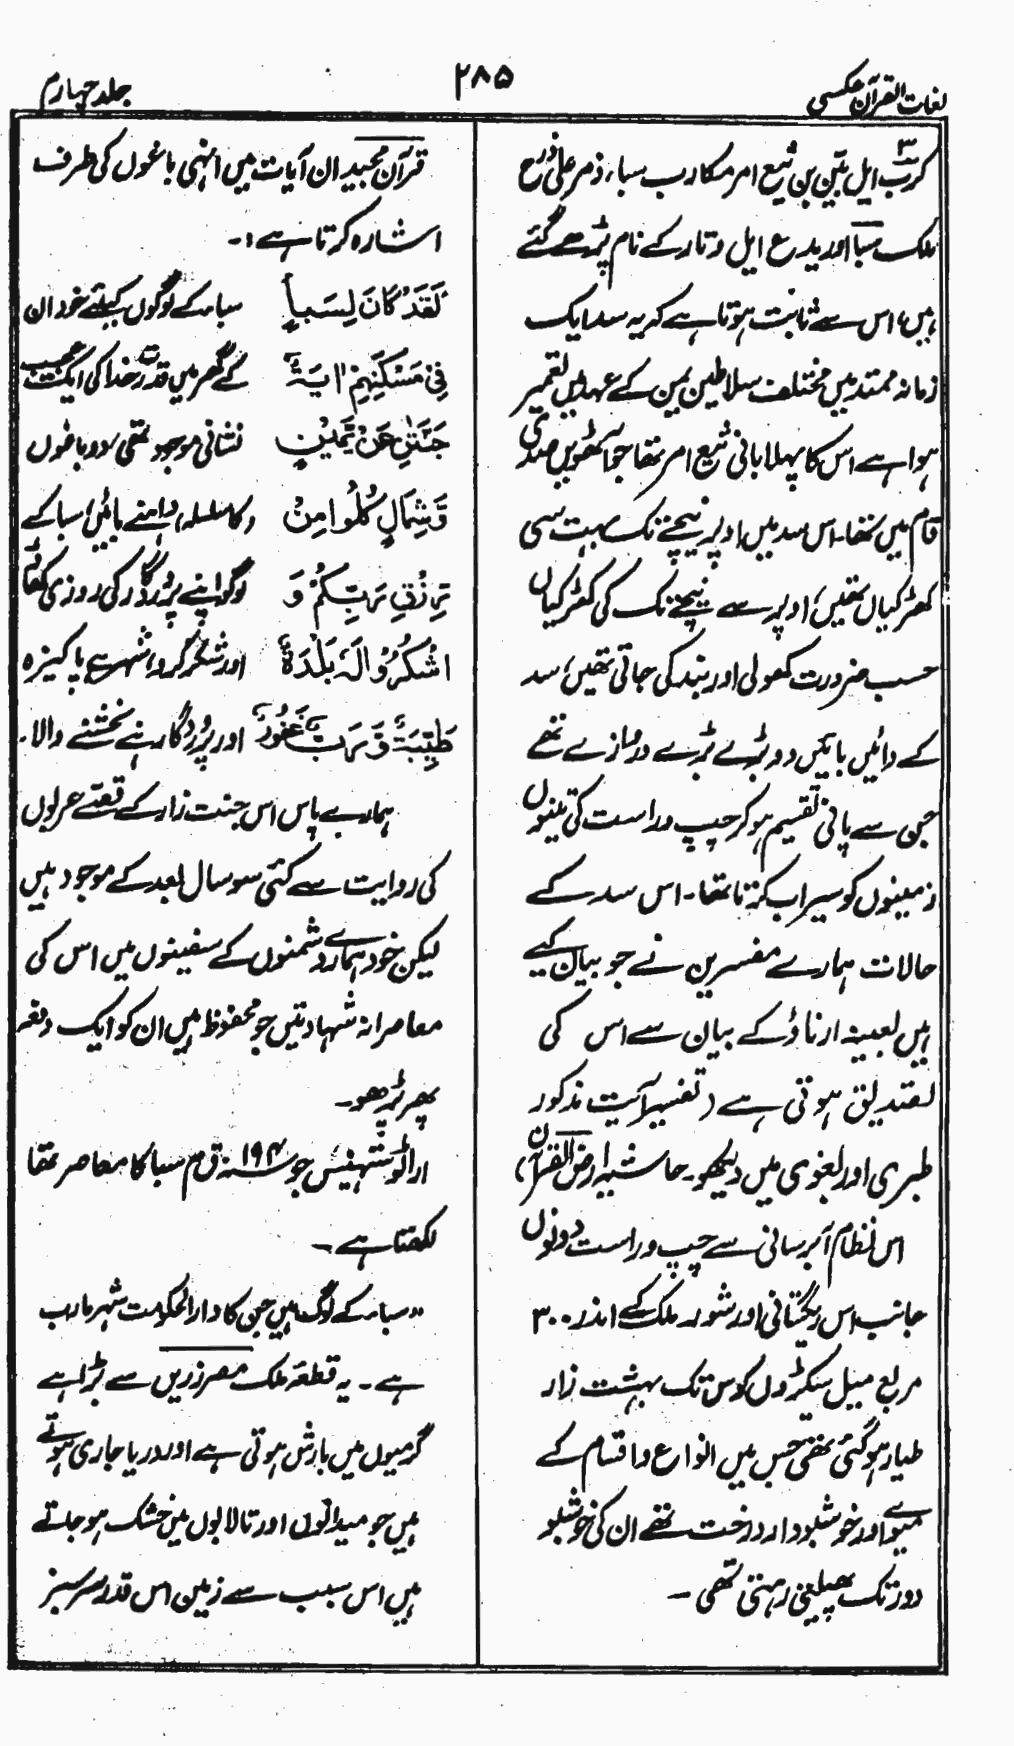 لغات القرآن عکسی
۲۸۵
جلد چہارم
کرب ایل بتین بن ثیع امر مکارب سبا، ذمر علی ذرح
ملک سبا اور یدع ایل وتار کے نام پڑھے گئے
ہیں، اس سے ثابت ہوتا ہے کہ یہ سد ایک
زمانہ ممتد میں مختلف سلاطین یمن کے عہد میں تعمیر
ہوا ہے اس کا پہلا بانی ثیع امر تھا جو آٹھویں صدی
ق م میں تھا۔ اس سد میں اوپر نیچے تک بہت سی
کھڑکیاں تھیں، اوپر سے نیچے تک کی کھڑکیاں
حسب ضرورت کھولی اور بند کی جاتی تھیں، سد
کے دائیں بائیں دو بڑے بڑے دروازے تھے
جن سے پانی تقسیم ہو کر چپ و راست کی زمینوں
زمینوں کو سیراب کرتا تھا۔ اس سد کے
حالات ہمارے مفسرین نے جو بیان کیے
ہیں بعینہ ارناؤ کے بیان سے اس کی
تصدیق ہوتی ہے (تفسیر آیت مذکور
طبری اور بغوی میں دیکھو۔ حاشیہ ارض القرآن)
اس نظام آبرسانی سے چپ و راست دونوں
جانب اس ریگستانی اور شور ملک کے اندر ۳۰۰
مربع میل سیکڑوں کوس تک بہشت زار
طیار ہو گئی تھی جس میں انواع و اقسام کے
میوے اور خوشبودار درخت تھے ان کی خوشبو
دور تک پھیلتی رہتی تھی ۔
قرآن مجید ان آیات میں انہی باغوں کی طرف
اشارہ کرتا ہے :۔
لَقَدْ كَانَ لِسَبَاٍ سباء کے لوگوں کیلئے خود ان
فِيْ مَسْكَنِهِمْ اٰيَةٌ کے گھر میں قدرت خدا کی ایک عجیب
جَنَّتٰنِ عَنْ يَّمِيْنٍ نشانی موجود تھی دو باغوں
وَّشِمَالٍ كُلُوا مِنْ کا سلسلہ، داہنے بائیں، سبا کے
رِّزْقِ رَبِّكُمْ وَ لوگو اپنے پروردگار کی روزی کھاؤ
اشْكُرُوْا لَهٗ بَلْدَةٌ اور شکر کرو، شہر ہے پاکیزہ
طَيِّبَةٌ وَّرَبٌّ غَفُوْرٌ اور پروردگار ہے بخشنے والا.
ہمارے پاس اس جنت زار کے قصے عربوں
کی روایت سے کئی سو سال بعد کے موجود ہیں
لیکن خود ہمارے دشمنوں کے سفینوں میں اس کی
معاصرانہ شہادتیں جو محفوظ ہیں ان کو ایک دفعہ
پھر پڑھو۔
اراٹوستہنیس جو ۱۹۴ سنہ ق م سبا کا معاصر تھا
لکھتا ہے ۔
"سباء کے لوگ ہیں جن کا دارالحکومت شہر مارب
ہے ۔ یہ قطعہ ملک مصر زریں سے بڑا ہے
گرمیوں میں بارش ہوتی ہے اور دریا جاری ہوتے
ہیں جو میدانوں اور تالابوں میں خشک ہو جاتے
ہیں اس سبب سے زمین اس قدر سرسبز